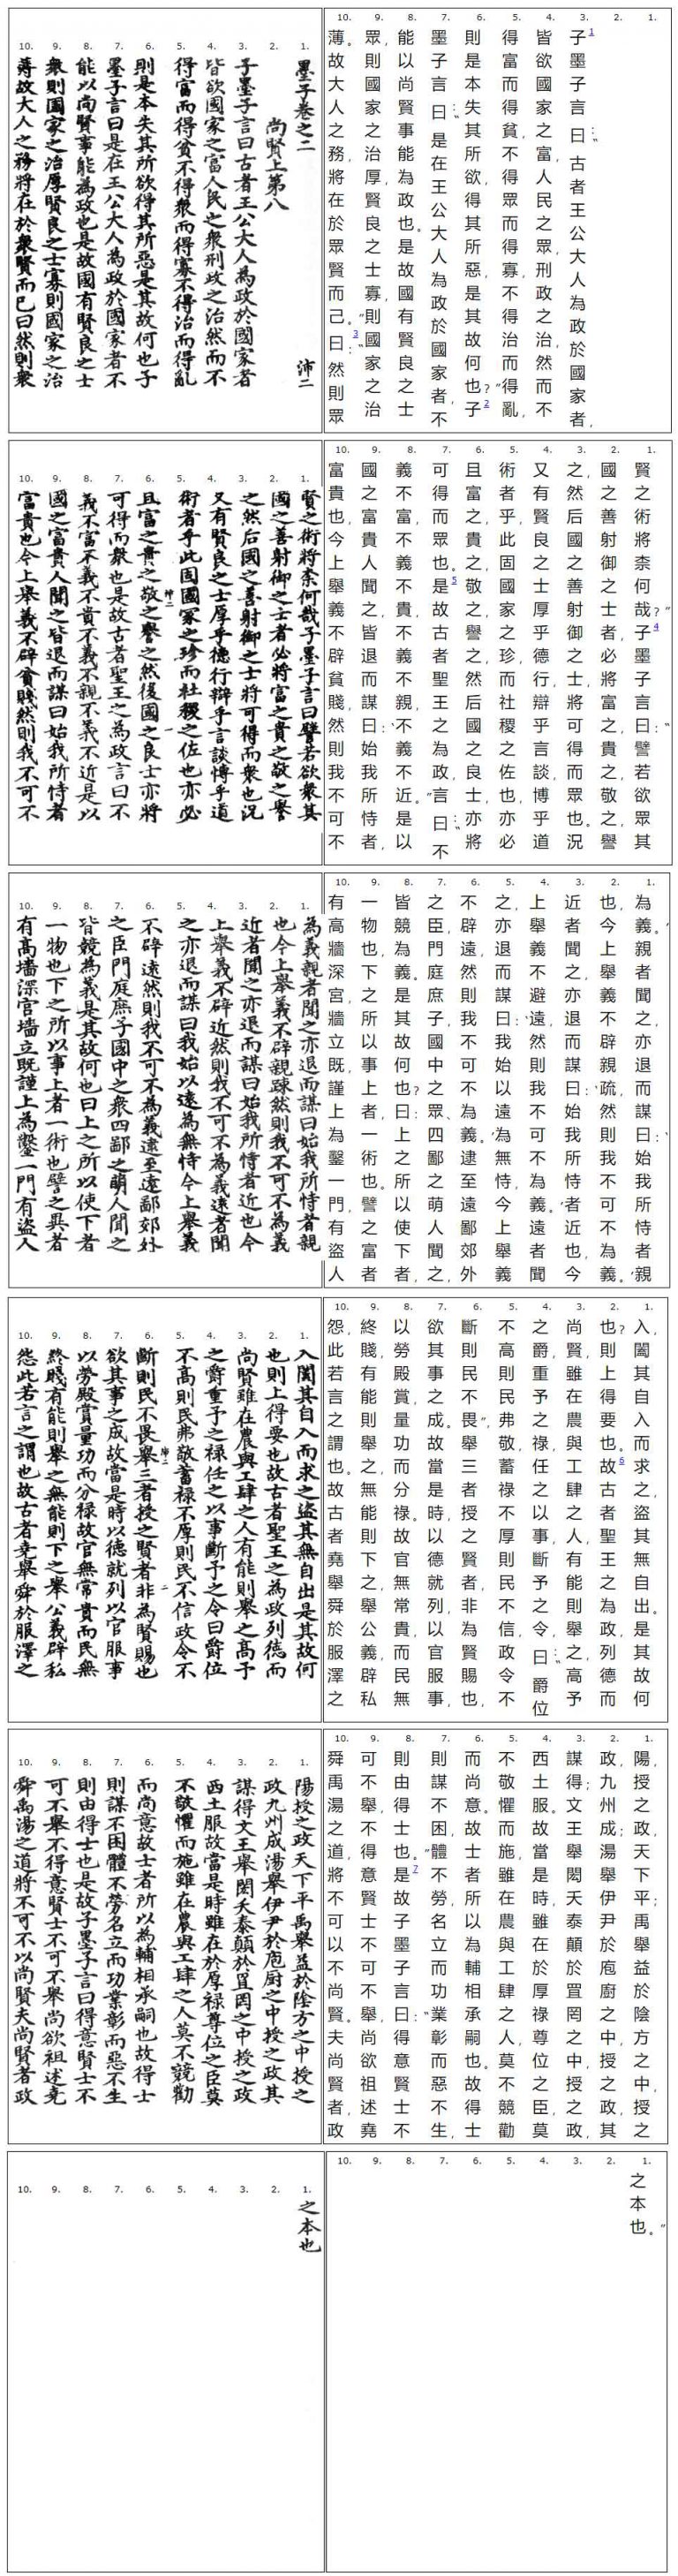 1. 墨子卷之二 沛二
2. 尚賢上第八
3. 子墨子言曰古者王公大人為政於國家者
4. 皆欲國家之富人民之衆刑政之治然而不
5. 得富而得貧不得衆而得寡不得治而得亂
6. 則是本失其所欲得其所惡是其故何也子
7. 墨子言曰是在王公大人為政於國家者不
8. 能以尚賢事能為政也是故國有賢良之士
9. 衆則國家之治厚賢良之士寡則國家之治
10. 薄故大人之務將在於衆賢而已曰然則衆
1.
2.
3. 子1墨子言曰:“古者王公大人為政於國家者,
4. 皆欲國家之富,人民之眾,刑政之治,然而不
5. 得富而得貧,不得眾而得寡,不得治而得亂,
6. 則是本失其所欲,得其所惡,是其故何也?”子2
7. 墨子言曰:“是在王公大人為政於國家者,不
8. 能以尚賢事能為政也。是故國有賢良之士
9. 眾,則國家之治厚,賢良之士寡,則國家之治
10. 薄。故大人之務,將在於眾賢而己。”曰:“3然則眾
1. 賢之術將柰何哉子墨子言曰譬若欲衆其
2. 國之善射御之士者必將富之貴之敬之譽
3. 之然后國之善射御之士將可得而衆也況
4. 又有賢良之士厚乎德行辯乎言談博乎道
5. 術者乎此固國家之珍而社稷之佐也亦必
6. 且富之貴之敬之譽之然後國之良士亦將
7. 可得而衆也是故古者聖王之為政言曰不
8. 義不富不義不貴不義不親不義不近是以
9. 國之富貴人聞之皆退而謀曰始我所恃者
10. 富貴也今上舉義不辟貧賤然則我不可不
1. 賢之術將柰何哉?”子4
2. 國之善射御之士者,必將富之,貴之,敬之,譽
3. 之,然后國之善射御之士,將可得而眾也。況
4. 又有賢良之士厚乎德行,辯乎言談,博乎道
5. 術者乎,此固國家之珍,而社稷之佐也,亦必
6. 且富之,貴之,敬之,譽之,然后國之良士,亦將
7. 可得而眾也。是5故古者聖王之為政,言曰:‘不
8. 義不富,不義不貴,不義不親,不義不近。’是以
9. 國之富貴人聞之,皆退而謀曰:‘始我所恃者,
10. 富貴也,今上舉義不辟貧賤,然則我不可不
1. 為義親者聞之亦退而謀曰始我所恃者親
2. 也今上舉義不辟親踈然則我不可不為義
3. 近者聞之亦退而謀曰始我所恃者近也今
4. 上舉義不辟近然則我不可不為義遠者聞
5. 之亦退而謀曰我始以遠為無恃今上舉義
6. 不辟遠然則我不可不為義遠至遠鄙郊外
7. 之臣門庭庶子國中之衆四鄙之萌人聞之
8. 皆競為義是其故何也曰上之所以使下者
9. 一物也下之所以事上者一術也譬之異者
10. 有高墻深宮墻立既謹上為鑿一門有盜人
1. 為義。’親者聞之,亦退而謀曰:‘始我所恃者親
2. 也,今上舉義不辟親疏,然則我不可不為義。’
3. 近者聞之,亦退而謀曰:‘始我所恃者近也,今
4. 上舉義不避遠,然則我不可不為義。’遠者聞
5. 之,亦退而謀曰:‘我始以遠為無恃,今上舉義
6. 不辟遠,然則我不可不為義。’逮至遠鄙郊外
7. 之臣,門庭庶子,國中之眾、四鄙之萌人聞之,
8. 皆競為義。是其故何也?曰:上之所以使下者,
9. 一物也,下之所以事上者,一術也。譬之富者
10. 有高牆深宮,牆立既,謹上為鑿一門,有盜人
1. 入闔其自入而求之盜其無自出是其故何
2. 也則上得要也故古者聖王之為政列德而
3. 尚賢雖在農與工肆之人有能則舉之高予
4. 之爵重予之祿任之以事斷予之令曰爵位
5. 不高則民弗敬蓄祿不厚則民不信政令不
6. 斷則民不畏舉三者授之賢者非為賢賜也
7. 欲其事之成故當是時以德就列以官服事
8. 以勞殿賞量功而分祿故官無常貴而民無
9. 終賤有能則舉之無能則下之舉公義辟私
10. 怨此若言之謂也故古者堯舉舜於服澤之
1. 入,闔其自入而求之,盜其無自出。是其故何
2. 也?則上得要也。故6古者聖王之為政,列德而
3. 尚賢,雖在農與工肆之人,有能則舉之,高予
4. 之爵,重予之祿,任之以事,斷予之令,曰:“爵位
5. 不高則民弗敬,蓄祿不厚則民不信,政令不
6. 斷則民不畏”,舉三者授之賢者,非為賢賜也,
7. 欲其事之成。故當是時,以德就列,以官服事,
8. 以勞殿賞,量功而分祿。故官無常貴,而民無
9. 終賤,有能則舉之,無能則下之,舉公義,辟私
10. 怨,此若言之謂也。故古者堯舉舜於服澤之
1. 陽授之政天下平禹舉益於陰方之中授之
2. 政九州成湯舉伊尹於庖厨之中授之政其
3. 謀得文王舉閎夭泰顛於罝罔之中授之政
4. 西土服故當是時雖在於厚祿尊位之臣莫
5. 不敬懼而施雖在農與工肆之人莫不競勸
6. 而尚意故士者所以為輔相承嗣也故得士
7. 則謀不困體不勞名立而功業彰而惡不生
8. 則由得士也是故子墨子言曰得意賢士不
9. 可不舉不得意賢士不可不舉尚欲祖述堯
10. 舜禹湯之道將不可不以尚賢夫尚賢者政
1. 陽,授之政,天下平;禹舉益於陰方之中,授之
2. 政,九州成;湯舉伊尹於庖廚之中,授之政,其
3. 謀得;文王舉閎夭泰顛於罝罔之中,授之政,
4. 西土服。故當是時,雖在於厚祿尊位之臣,莫
5. 不敬懼而施,雖在農與工肆之人,莫不競勸
6. 而尚意。故士者所以為輔相承嗣也。故得士
7. 則謀不困,體不勞,名立而功業彰而惡不生,
8. 則由得士也。”是7故子墨子言曰:“得意賢士不
9. 可不舉,不得意賢士不可不舉,尚欲祖述堯
10. 舜禹湯之道,將不可以不尚賢。夫尚賢者,政
1. 之本也
2.
3.
4.
5.
6.
7.
8.
9.
10.
1. 之本也。”
2.
3.
4.
5.
6.
7.
8.
9.
10.